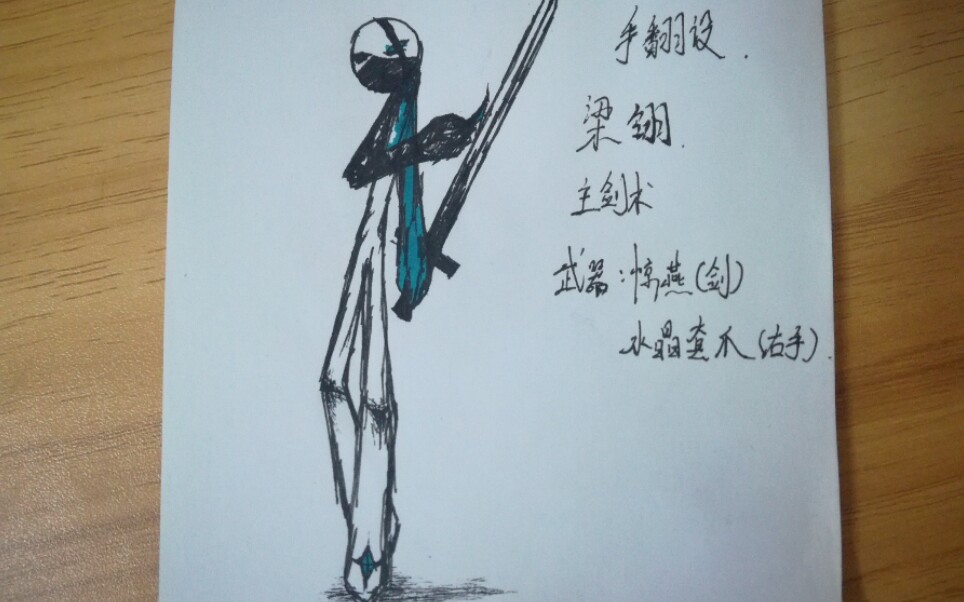 手翻设.
梁翎.
主剑术
武器:惊燕(剑)
水晶查爪(右手).